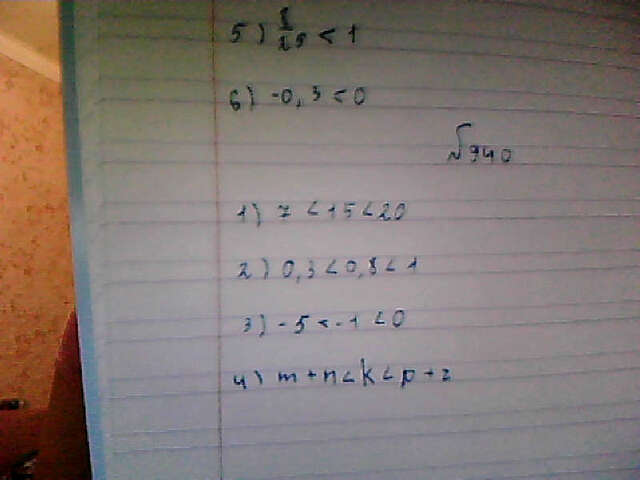 5) 1/25 < 1
6) -0,3 < 0
№ 940
1) 7 < 15 < 20
2) 0,3 < 0,5 < 1
3) -5 < -1 < 0
4) m + n < k < p + 2